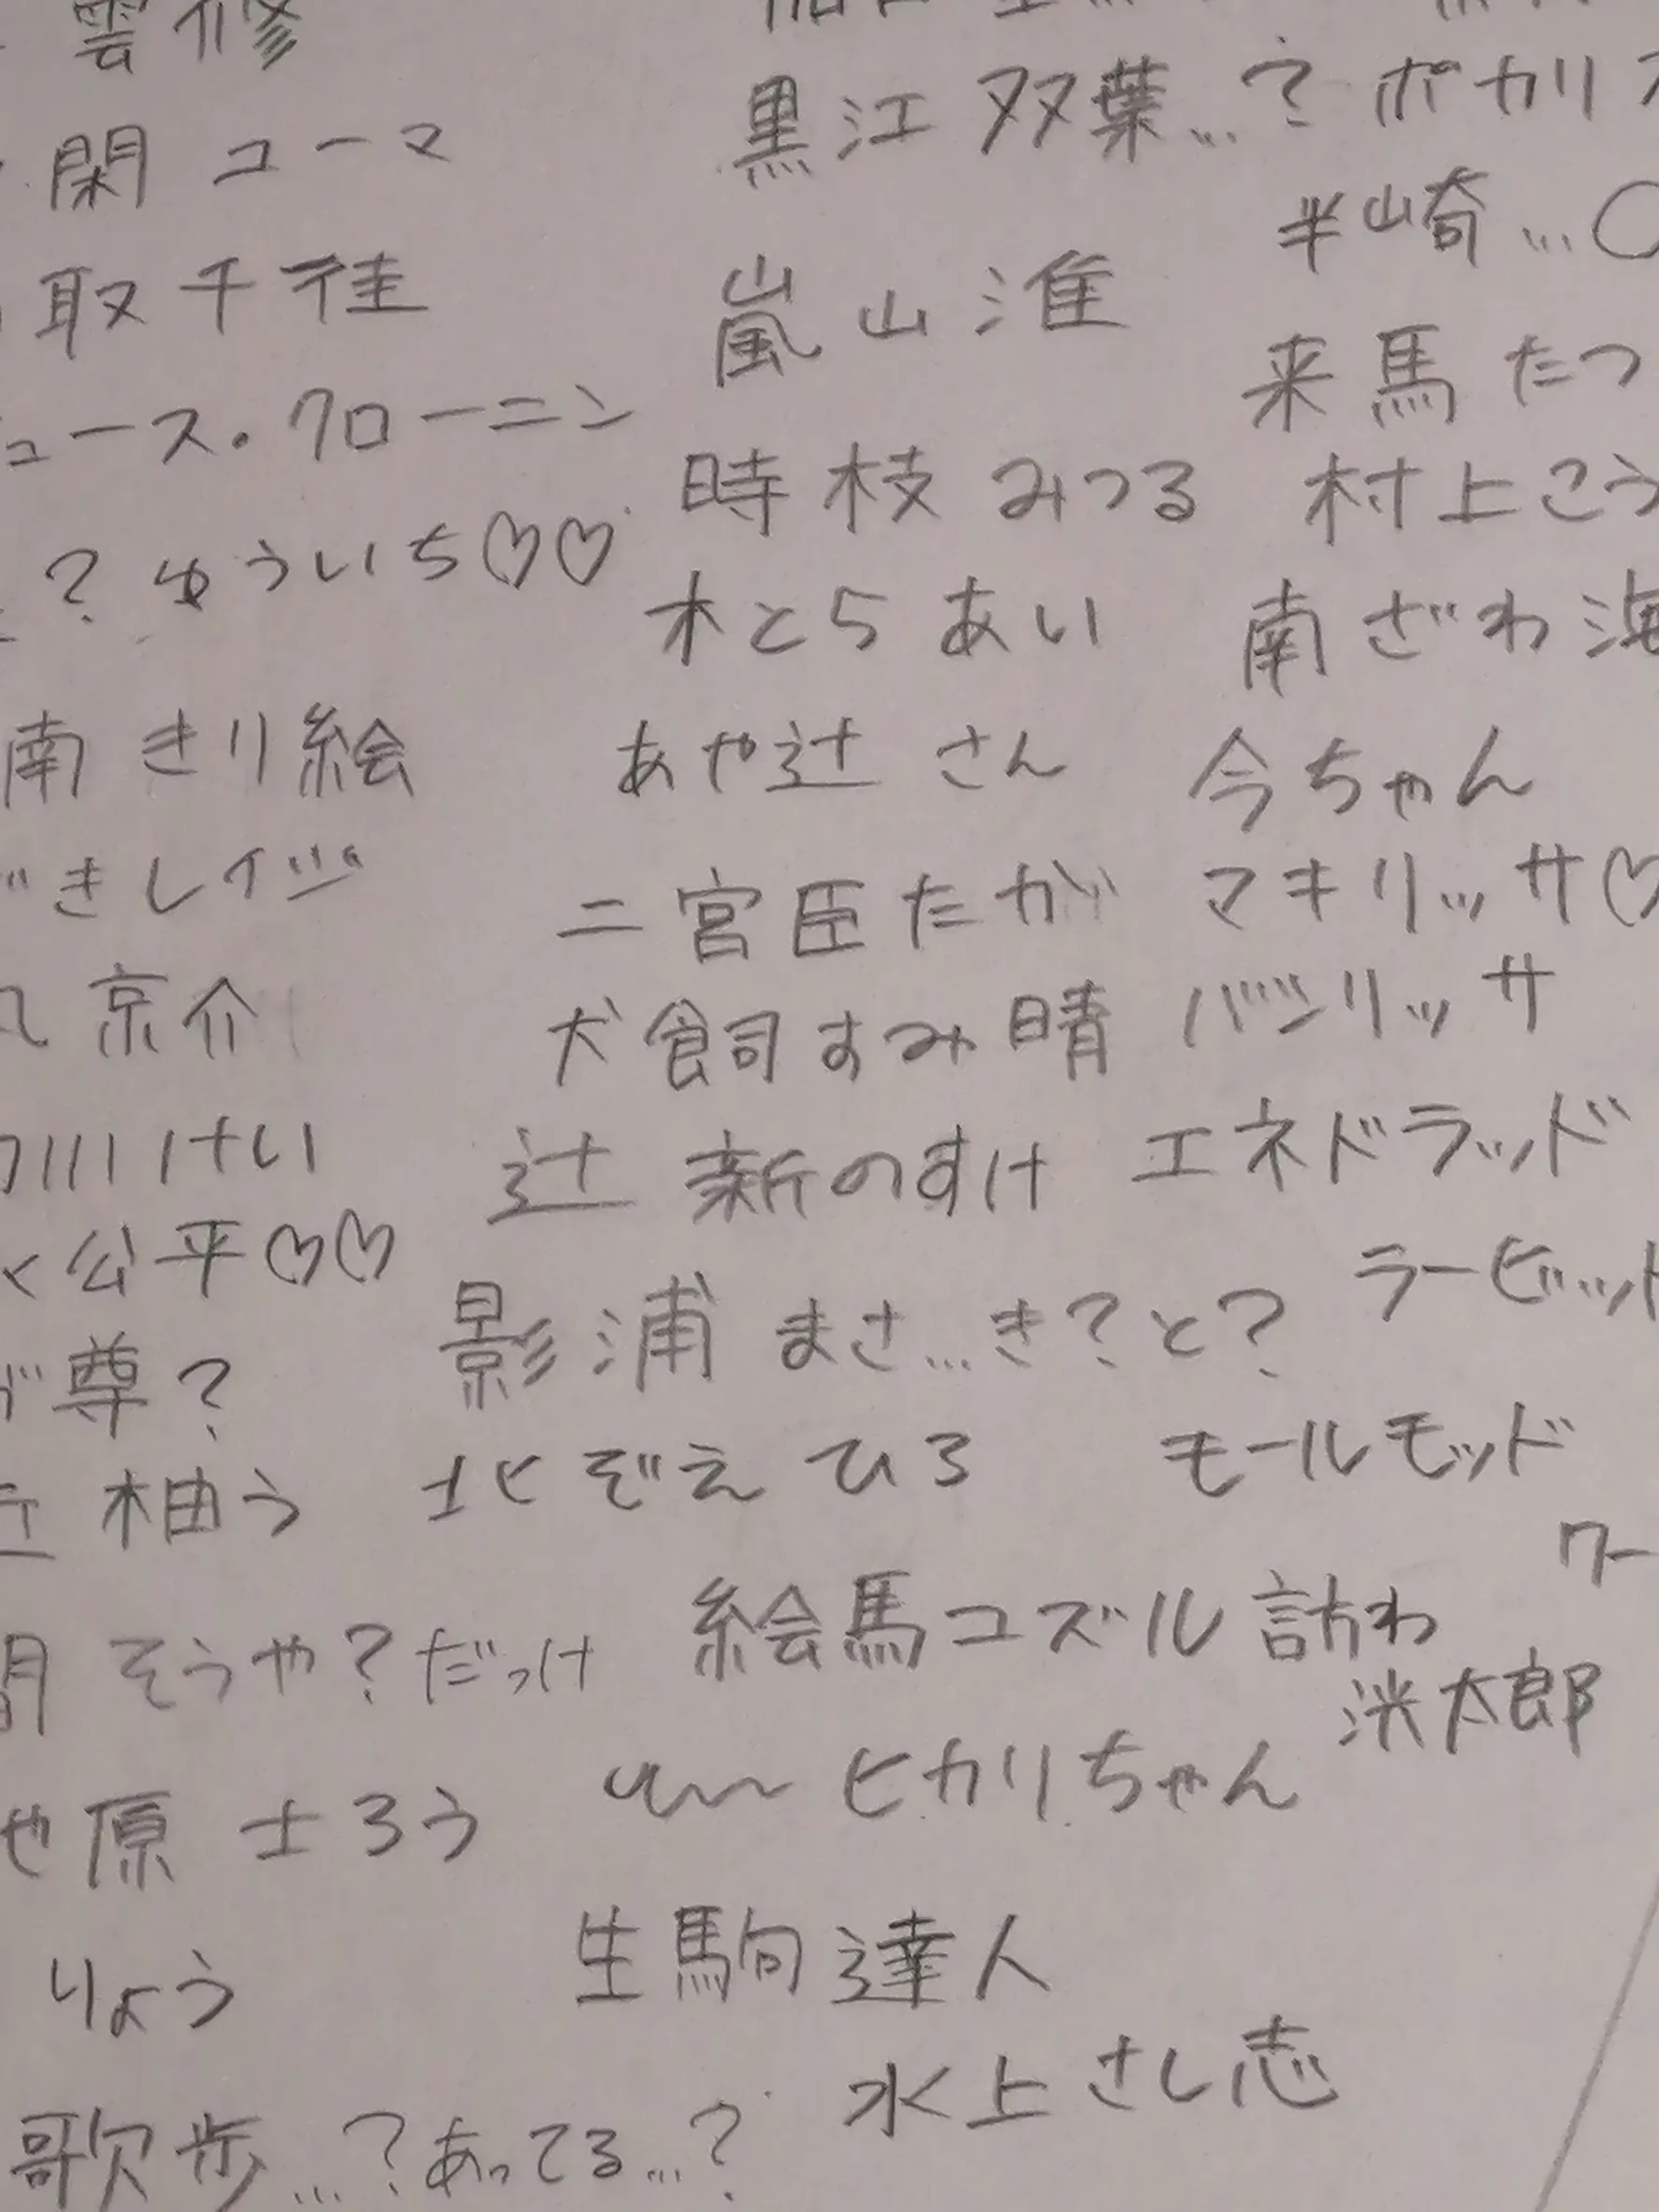 雲修
閑 ユーマ
取 千佳
ュース・クローニン
？ゆういち♡♡
南 きり絵
きレイジ
京介
川けい
公平♡♡
尊？
柚う
そうや？だっけ
原 士ろう
りょう
歌歩…？あってる…？
黒江 双葉…？
嵐山 准
時枝 みつる
木とら あい
あや辻 さん
二宮 匡たか
犬飼 すみ晴
辻 新のすけ
影浦 まさ…き？と？
北ぞえ ひろ
絵馬 ユズル
ヒカリちゃん
生駒 達人
水上 さし志
ポカリ
半崎…
来馬 たつ
村上 こう
南ざわ 海
今ちゃん
マキリッサ♡
バシリッサ
エネドラッド
ラービット
モールモッド
ワー
訪わ
洸太郎